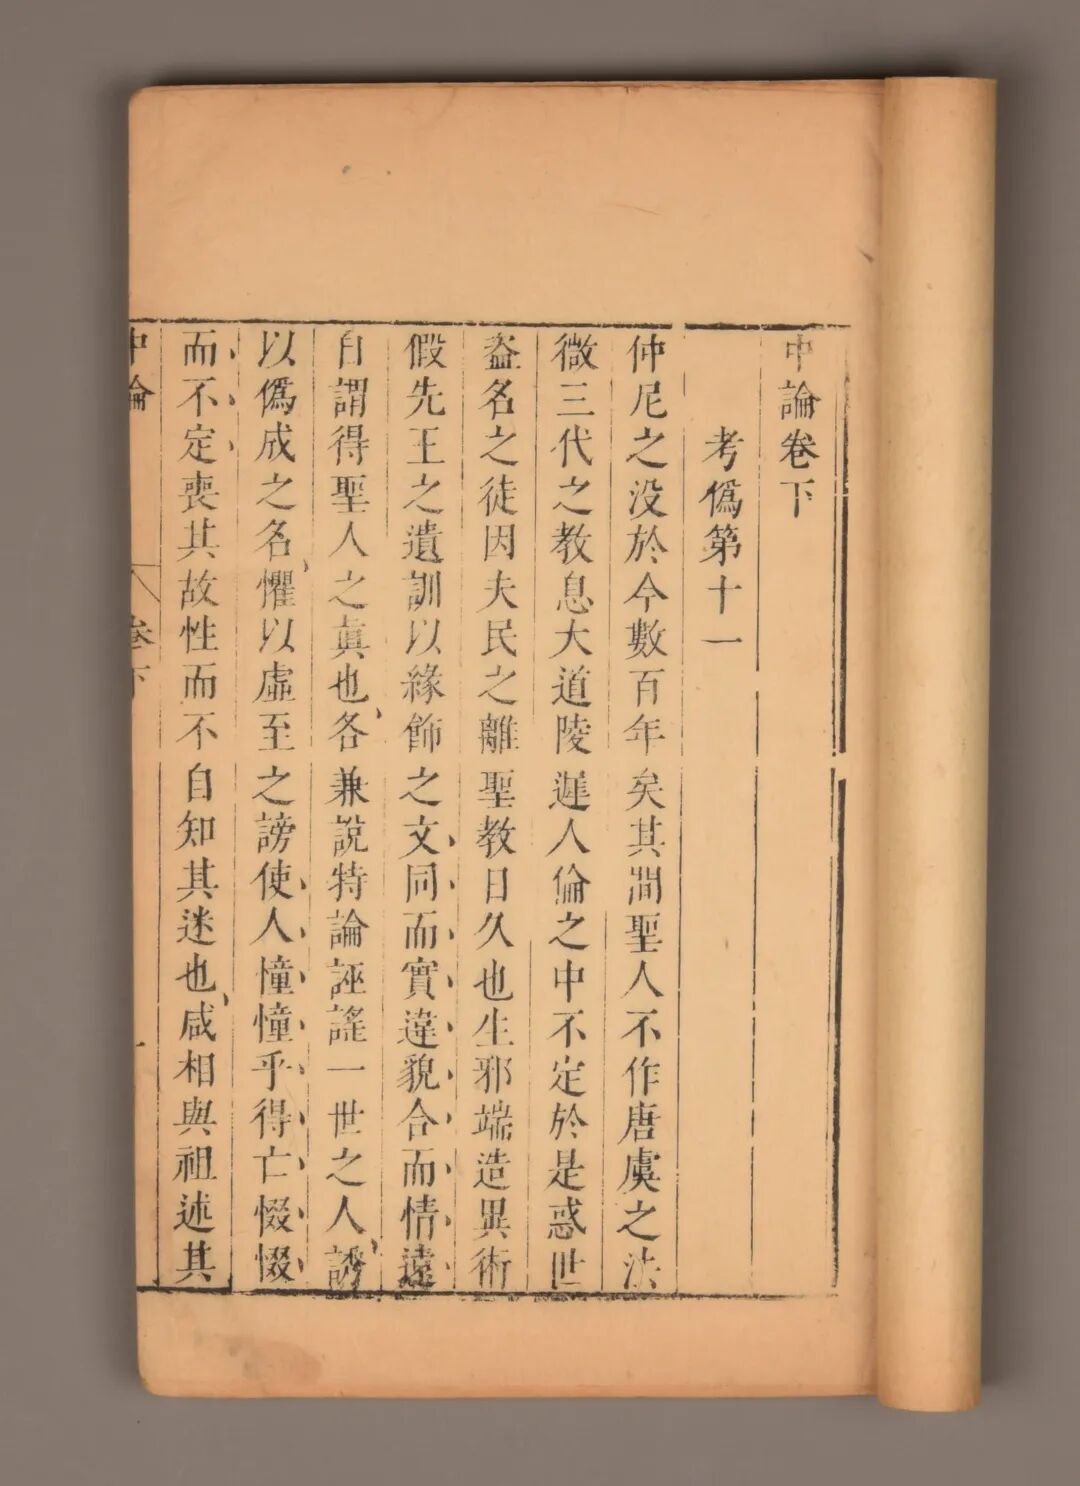 中論卷下
考僞第十一
仲尼之没於今數百年矣其間聖人不作唐虞之法
微三代之教息大道陵遲人倫之中不定於是惑世
盗名之徒因夫民之離聖教日久也生邪端造異術
假先王之遺訓以緣飾之文同而實違貌合而情遠
自謂得聖人之眞也各兼說特論誣謠一世之人誘
以僞成之名懼以虛至之謗使人憧憧乎得亡惙惙
而不定喪其故性而不自知其迷也咸相與祖述其
中論 卷下 一